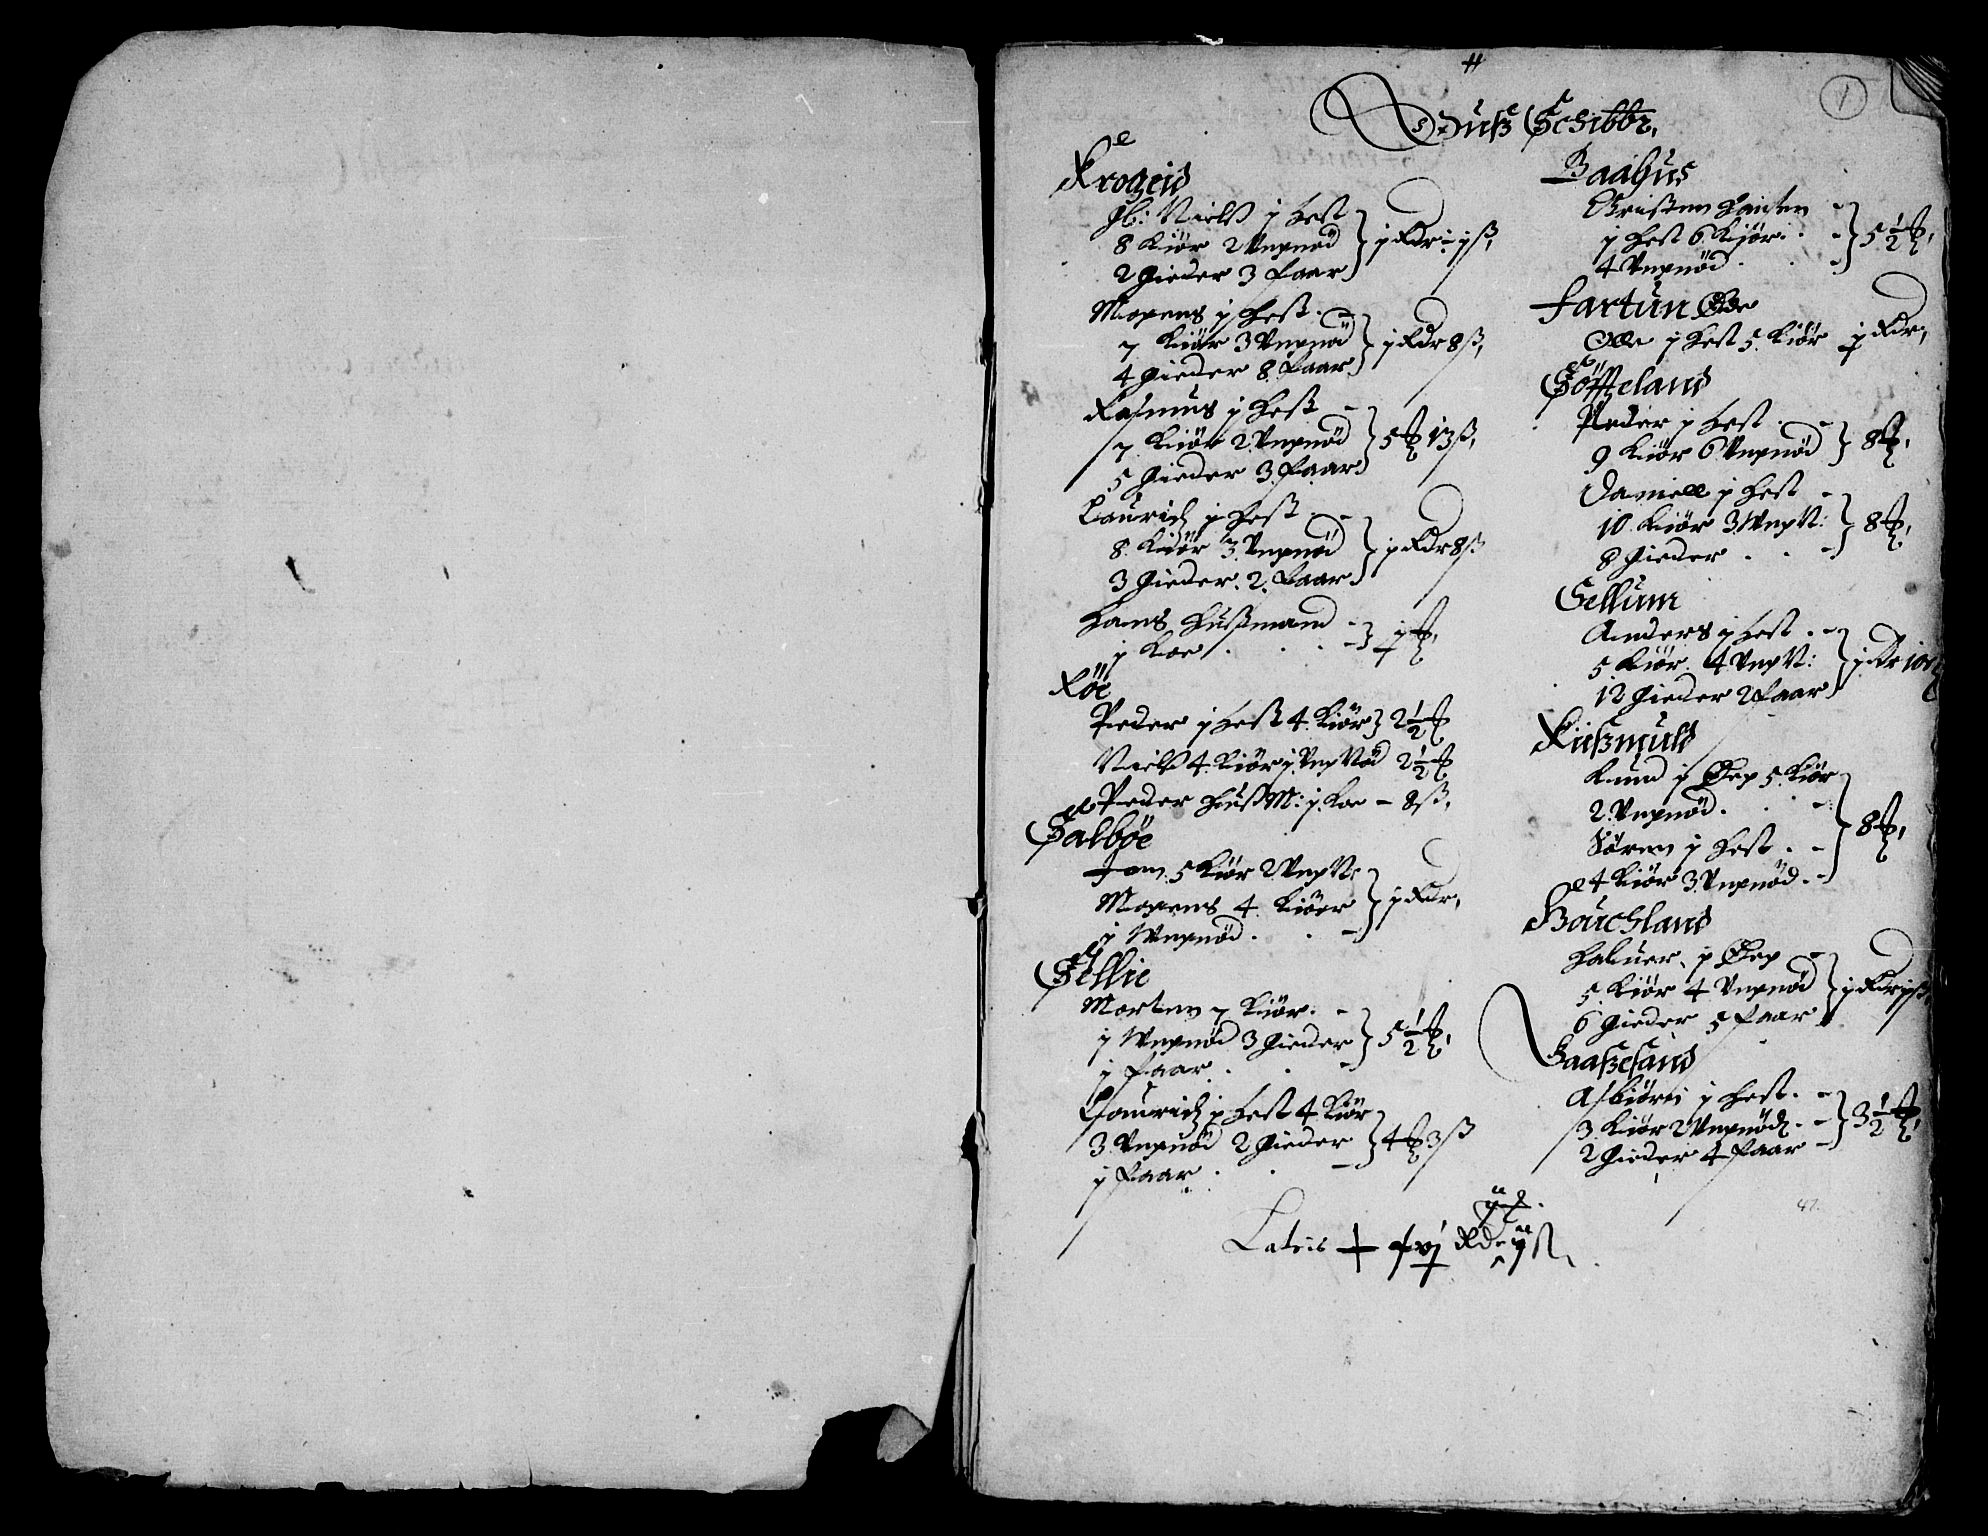 1
Huuß Schibbr,
Krogeid
Jb: Nielß j hest
8 kiör 2 Vngnöd
2 Gieder 3 faar } j Rdr : jß,
Mogens j hest
7 kiör 3 Vngnöd
4 Gieder 8 faar } j Rdr 8 ß,
Rasmus j hest
7 kiör 2 Vngnöd
5 Gieder 3 faar } 5 ꝶ 13 ß,
Lauridz j hest
8 kiör 3 Vngnöd
3 Gieder 2 faar } j Rdr 8 ß
Hans Hußmand
j koe } j ꝶ,
Röe
Peder j hest 4 kiör } 2½ ꝶ
Nielß 4 kiör j Vng Nöd 2½ ꝶ
Peder HußM: j koe - 8 ß,
Salböe
Jon 5 kiör 2 Vng N:
Mogens 4 kiöer
j Vngnöd } j Rdr,
Sellie
Morten 7 kiör
j Vngnöd 3 Gieder
j faar } 5½ ꝶ,
Lauridz j hest 4 kiör
3 Vngnöd 2 Gieder
j faar } 4 ꝶ 3 ß
Baahus
Christen
j hest 6 kiör
4 Vngnöd } 5½ ꝶ,
Fartun Ode
Ode j hest 5 kiör j Rdr,
Söffteland
Peder j hest
9 kiör 6 Vngnöd } 8 ꝶ,
Daniell j hest
10 kiör 3 Vng N:
8 Gieder } 8 ꝶ,
Sellum
Anders j hest
5 kiör 4 Vng N:
12 Gieder 2 faar } j Rdr 10 ß
Kußmuld
Knud j Öeg 5 kiör
2 Vngnöd
Sören j hest
4 kiör 3 Vngnöd } 8 ꝶ,
Hourchland
Haluer j Öeg
5 kiör 4 Vngnöd
6 Gieder 5 faar } j Rdr jß
Haaßesand
Asbiörn j hest
3 kiör 2 Vngnöd
2 Gieder 4 faar } 3½ ꝶ,
47.
Lateris xvj Rdr ij ß,